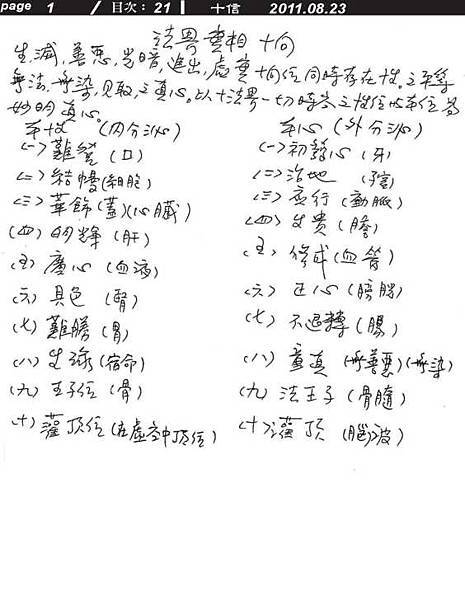 page 1 / 目次：21 十信 2011.08.23
法界實相 十向
生,滅,善惡,光暗,進出,虛實十向位,同時存在十性。之平等
無法,無染,見取,之真心。以十法界一切時 之性位 本位為
妙明真心。
本性 (內分泌) 本心 (外分泌)
(一) 難 (口) (一) 初發心 (牙)
(二) 結幡 (細胞) (二) 治地
(三) 華飾 (蓋) (心臟) (三) 應行 (動脈)
(四) 明輝 (肝) (四) 生貴 (膽)
(五) 廣心 (血液) (五) 修成 (血管)
(六) 具色 (腎) (六) 正心 (膀胱)
(七) 難勝 (胃) (七) 不退轉 (腸)
(八) 生 (宿命) (八) 童真 (無善惡) (無染)
(九) 王子位 (骨) (九) 法王子 (骨髓)
(十) 灌頂位 (在虛空中頂位) (十) 灌頂 (腦波)